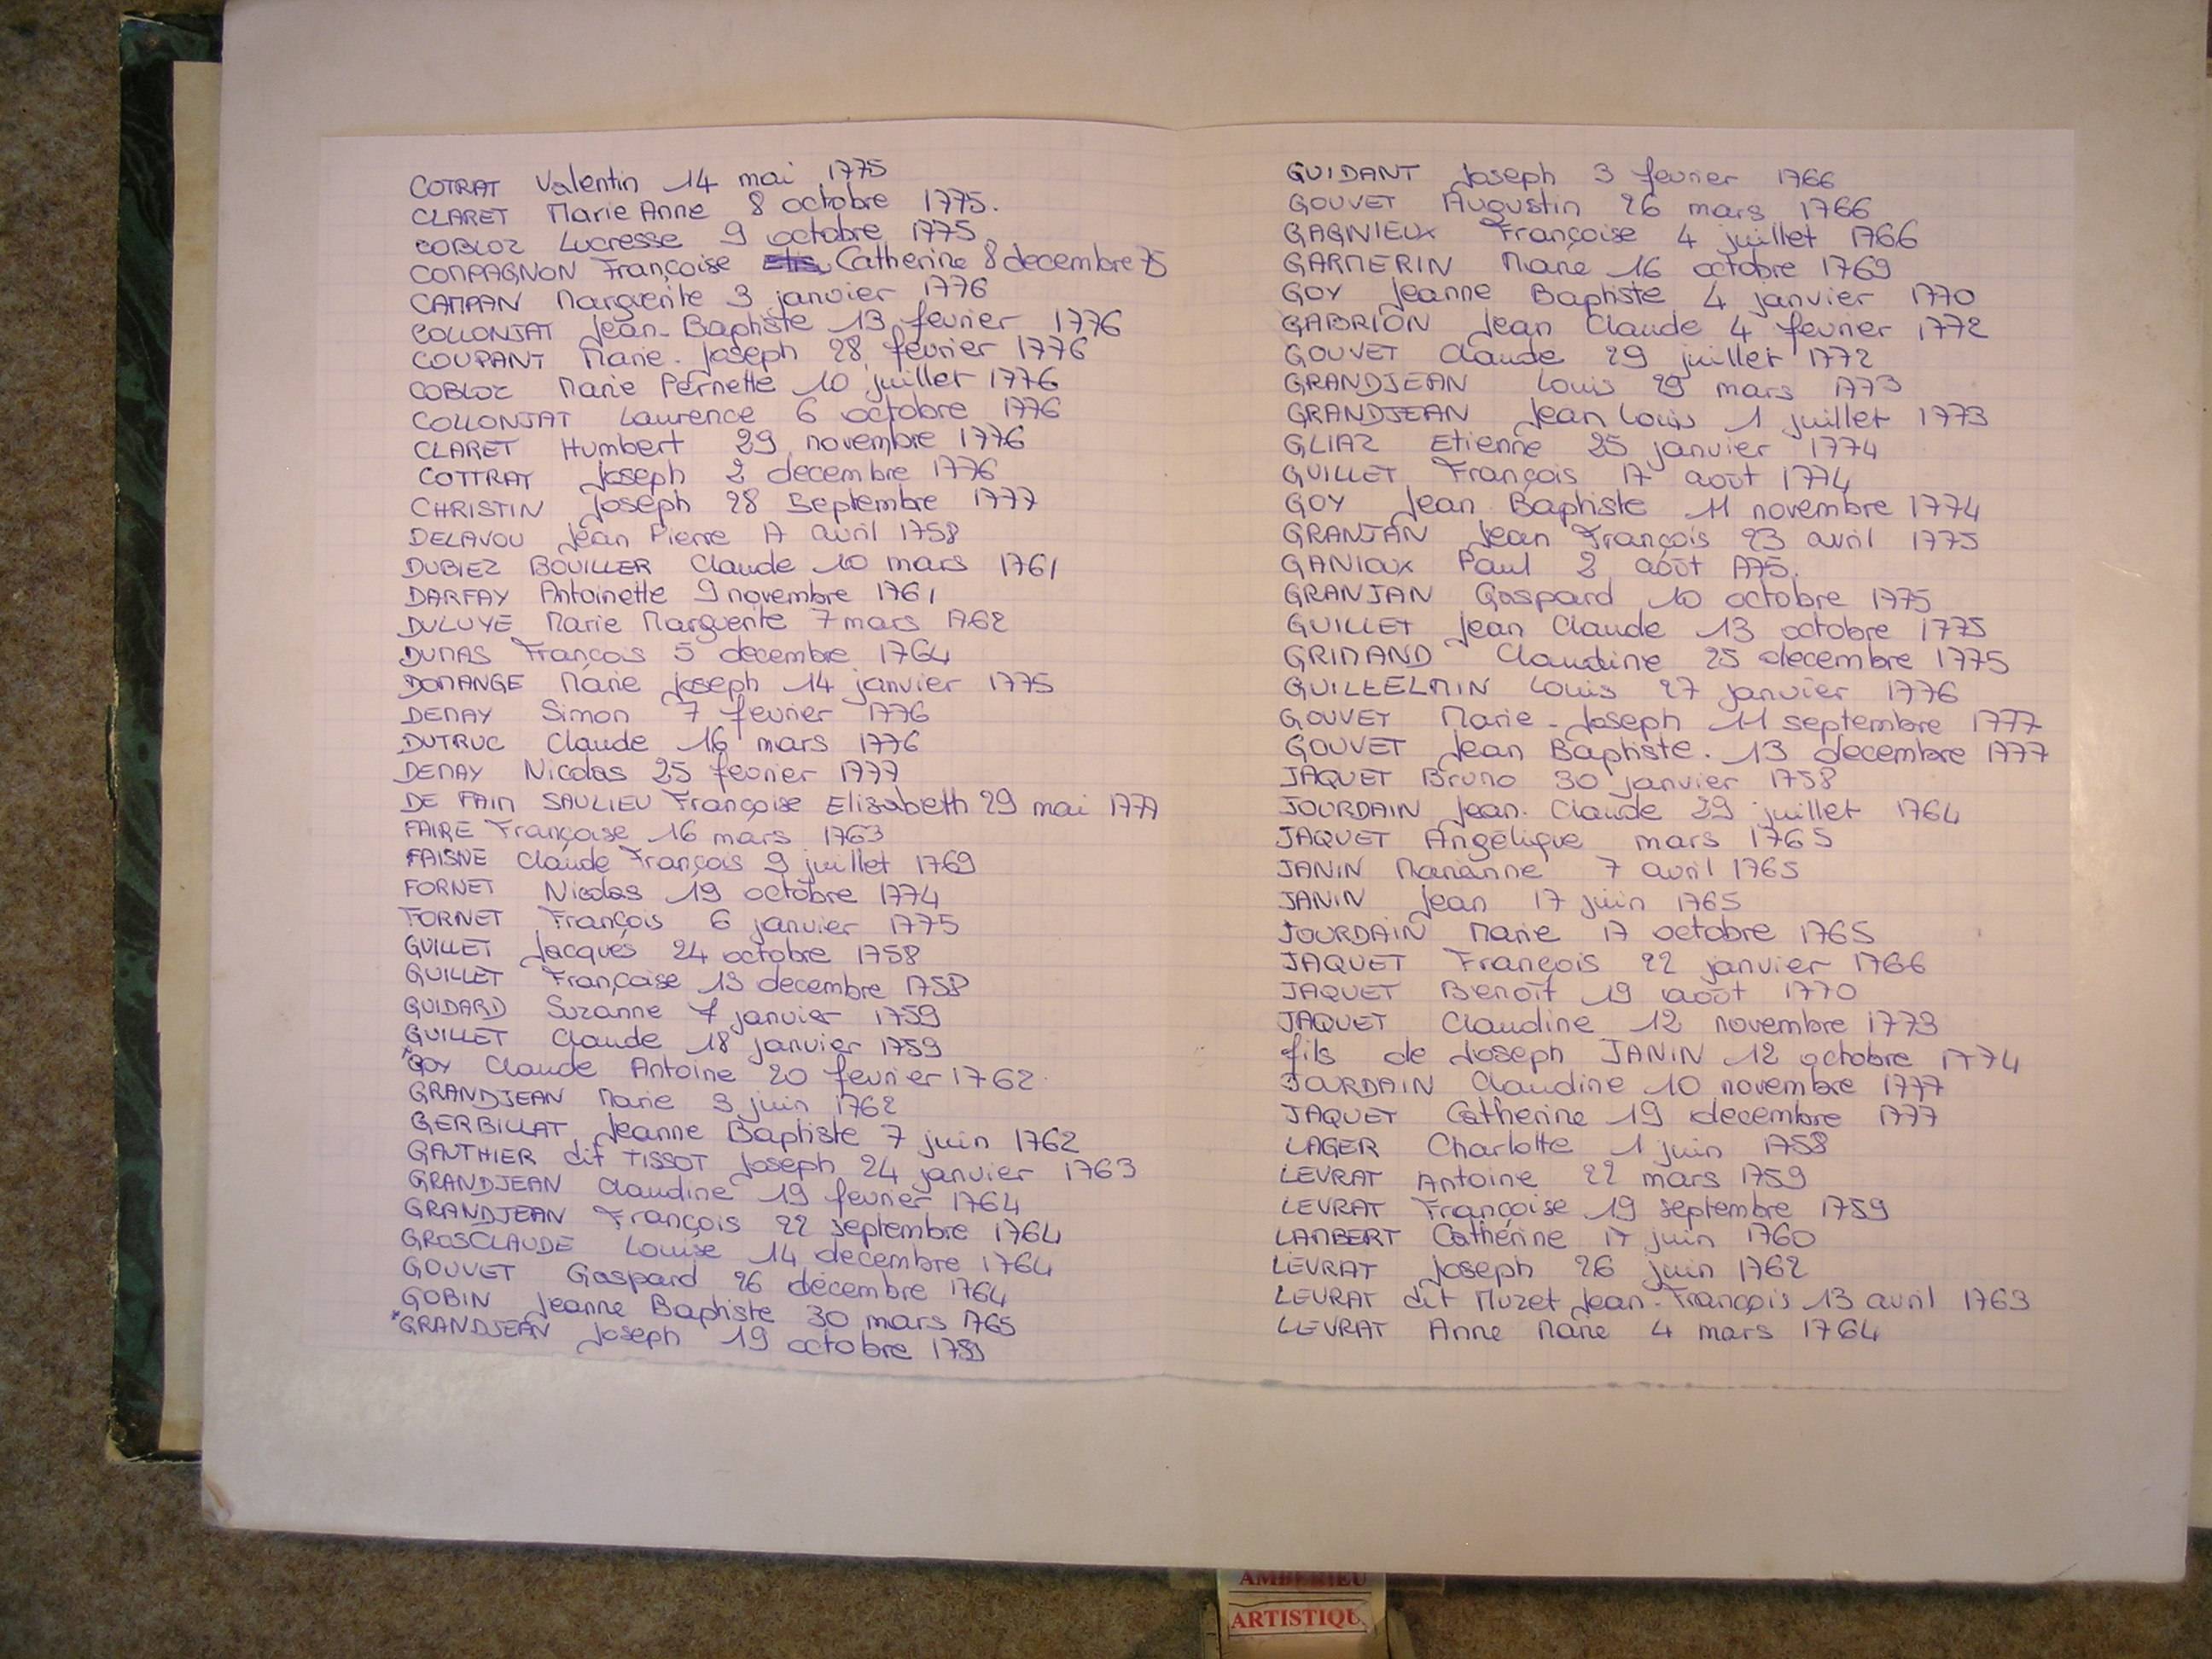 COTRAT Valentin 14 mai 1775
CLARET Marie Anne 8 octobre 1775.
COBLOZ Lucresse 9 octobre 1775
COMPAGNON Françoise Catherine 8 decembre 75
CAMPAN Marguerite 3 janvier 1776
COLLONJAT Jean-Baptiste 13 fevrier 1776
COUPANT Marie-Joseph 28 fevrier 1776
COBLOZ Marie Pernette 10 juillet 1776
COLLONJAT Laurence 6 octobre 1776
CLARET Humbert 29 novembre 1776
COTTRAT Joseph 2 decembre 1776
CHRISTIN Joseph 28 Septembre 1777
DELAVOU Jean Pierre 17 avril 1758
DUBIEZ BOUILLER Claude 10 mars 1761
DARFAY Antoinette 9 novembre 1761
DULUYE Marie Marguerite 7 mars 1762
DUMAS François 5 decembre 1764
DOMANGE Marie Joseph 14 janvier 1775
DEMAY Simon 7 fevrier 1776
DUTRUC Claude 16 mars 1776
DEMAY Nicolas 25 fevrier 1777
DE FAIN SAULIEU Françoise Elisabeth 29 mai 1777
FAIRE Françoise 16 mars 1763
FAISNE Claude François 9 juillet 1769
FORNET Nicolas 19 octobre 1774
FORNET François 6 janvier 1775
GUILLET Jacques 24 octobre 1758
GUILLET Françoise 13 decembre 1758
GUIDARD Suzanne 7 janvier 1759
GUILLET Claude 18 janvier 1759
*GOY Claude Antoine 20 fevrier 1762
GRANDJEAN Marie 3 juin 1762
GERBILLAT Jeanne Baptiste 7 juin 1762
GAUTHIER dit TISSOT Joseph 24 janvier 1763
GRANDJEAN Claudine 19 fevrier 1764
GRANDJEAN François 22 septembre 1764
GROSCLAUDE Louise 14 decembre 1764
GOUVET Gaspard 26 décembre 1764
GOBIN Jeanne Baptiste 30 mars 1765
*GRANDJEAN Joseph 19 octobre 1759
GUIDANT Joseph 3 fevrier 1766
GOUVET Augustin 26 mars 1766
GAGNIEUX Françoise 4 juillet 1766
GARMERIN Marie 16 octobre 1769
GOY Jeanne Baptiste 4 janvier 1770
GABRION Jean Claude 4 fevrier 1772
GOUVET Claude 29 juillet 1772
GRANDJEAN Louis 29 mars 1773
GRANDJEAN Jean Louis 1 juillet 1773
GLIAZ Etienne 25 janvier 1774
GUILLET François 17 août 1774
GOY Jean Baptiste 11 novembre 1774
GRANJAN Jean François 23 avril 1775
GANIOUX Paul 2 août 1775.
GRANJAN Gaspard 10 octobre 1775
GUILLET Jean Claude 13 octobre 1775
GRIMAND Claudine 25 decembre 1775
GUILLELMIN Louis 27 janvier 1776
GOUVET Marie-Joseph 11 septembre 1777
GOUVET Jean Baptiste. 13 decembre 1777
JAQUET Bruno 30 janvier 1758
JOURDAIN Jean-Claude 29 juillet 1764
JAQUET Angélique mars 1765
JANIN Marianne 7 avril 1765
JANIN Jean 17 juin 1765
JOURDAIN Marie 17 octobre 1765
JAQUET François 22 janvier 1766
JAQUET Benoît 19 août 1770
JAQUET Claudine 12 novembre 1773
fils de Joseph JANIN 12 octobre 1774
JOURDAIN Claudine 10 novembre 1777
JAQUET Catherine 19 decembre 1777
LAGER Charlotte 1 juin 1758
LEVRAT Antoine 22 mars 1759
LEVRAT Françoise 19 septembre 1759
LAMBERT Cathérine 17 juin 1760
LEVRAT Joseph 26 juin 1762
LEVRAT dit Muzet Jean-François 13 avril 1763
LEVRAT Anne Marie 4 mars 1764
AMBERIEU
ARTISTIQU